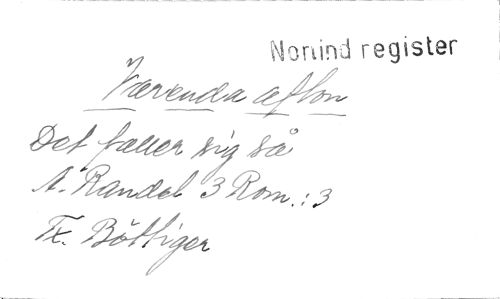 Norlind register
Värenda afton
Det faller sig så
A. Randel 3 Rom.: 3
Tx. Böttiger